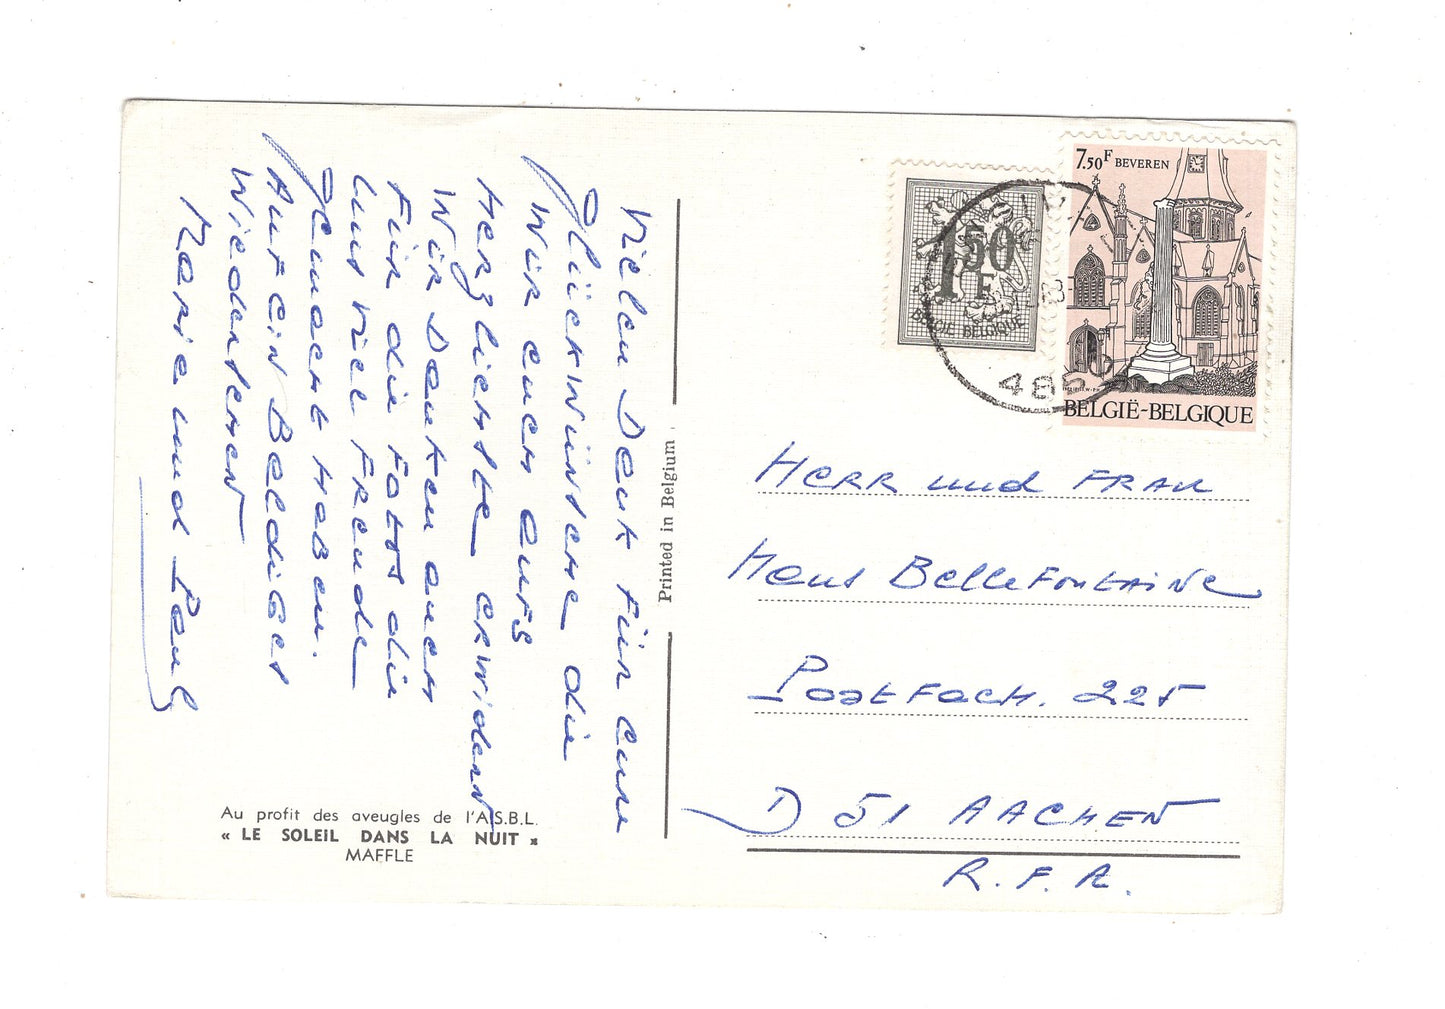 Vielen Dank für eure
Glückwünsche die
wir euch aufs
Herzlichste erwidern
wir Danken auch
Für die Fotos die
uns viel Freude
Gemacht Haben.
Auf ein Baldiges
Wiedersehen
Marie und Paul
Au profit des aveugles de l'A.S.B.L.
« LE SOLEIL DANS LA NUIT »
MAFFLE
Printed in Belgium
1F50
BELGIË BELGIQUE
7,50F BEVEREN
BELGIË-BELGIQUE
Herr und Frau
Hans Bellefontaine
Postfach. 225
D 51 AACHEN
R.F.A.